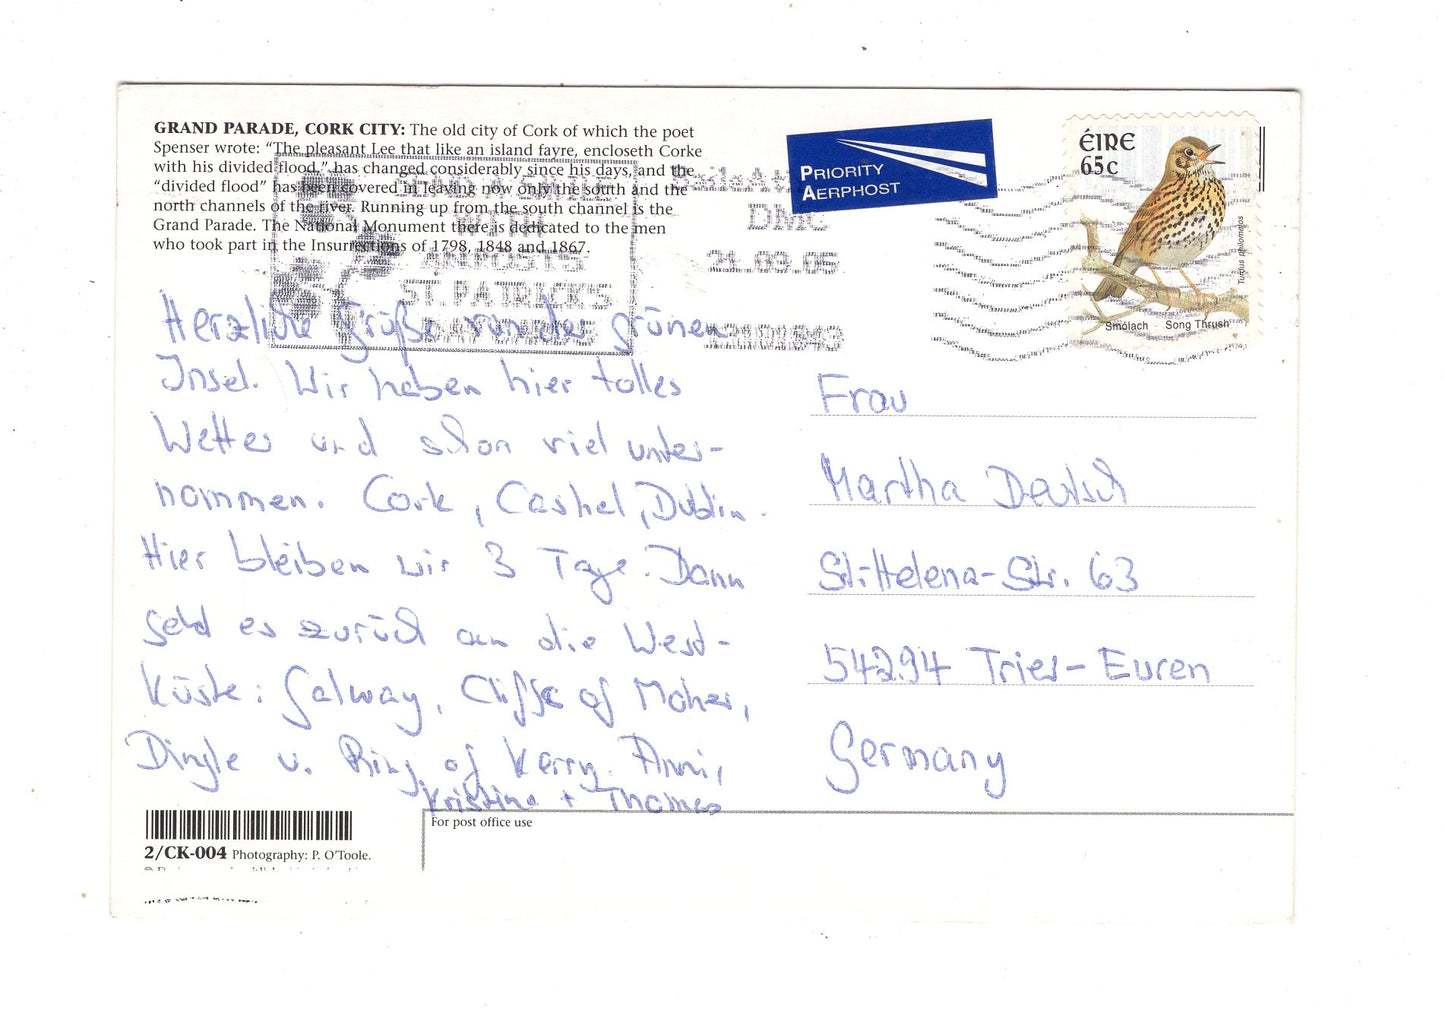 GRAND PARADE, CORK CITY: The old city of Cork of which the poet
Spenser wrote: “The pleasant Lee that like an island fayre, encloseth Corke
with his divided flood,” has changed considerably since his days, and the
“divided flood” has been covered in leaving now only the south and the
north channels of the river. Running up from the south channel is the
Grand Parade. The National Monument there is dedicated to the men
who took part in the Insurrections of 1798, 1848 and 1867.
SEND A SMILE
WITH
AN POST'S
ST. PATRICK'S
DAY CARDS
DMC
21.03.05
PRIORITY
AERPHOST
ÉIRE
65c
Turdus philomelos
Smólach Song Thrush
Herzliche Grüße von der grünen
Insel. Wir haben hier tolles
Wetter und schon viel unter-
nommen. Cork, Cashel, Dublin.
Hier bleiben wir 3 Tage. Dann
geht es zurück an die West-
küste: Galway, Cliffs of Moher,
Dingle u. Ring of Kerry. Anni,
Kristina + Thomas
Frau
Martha Deutsch
St.-Helena-Str. 63
54294 Trier-Euren
Germany
For post office use
2/CK-004 Photography: P. O'Toole.